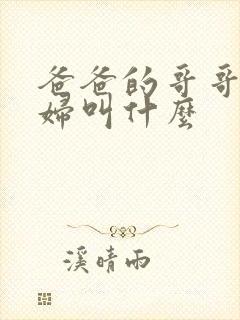 爸爸的哥哥
婦叫什麼
溪晴雨